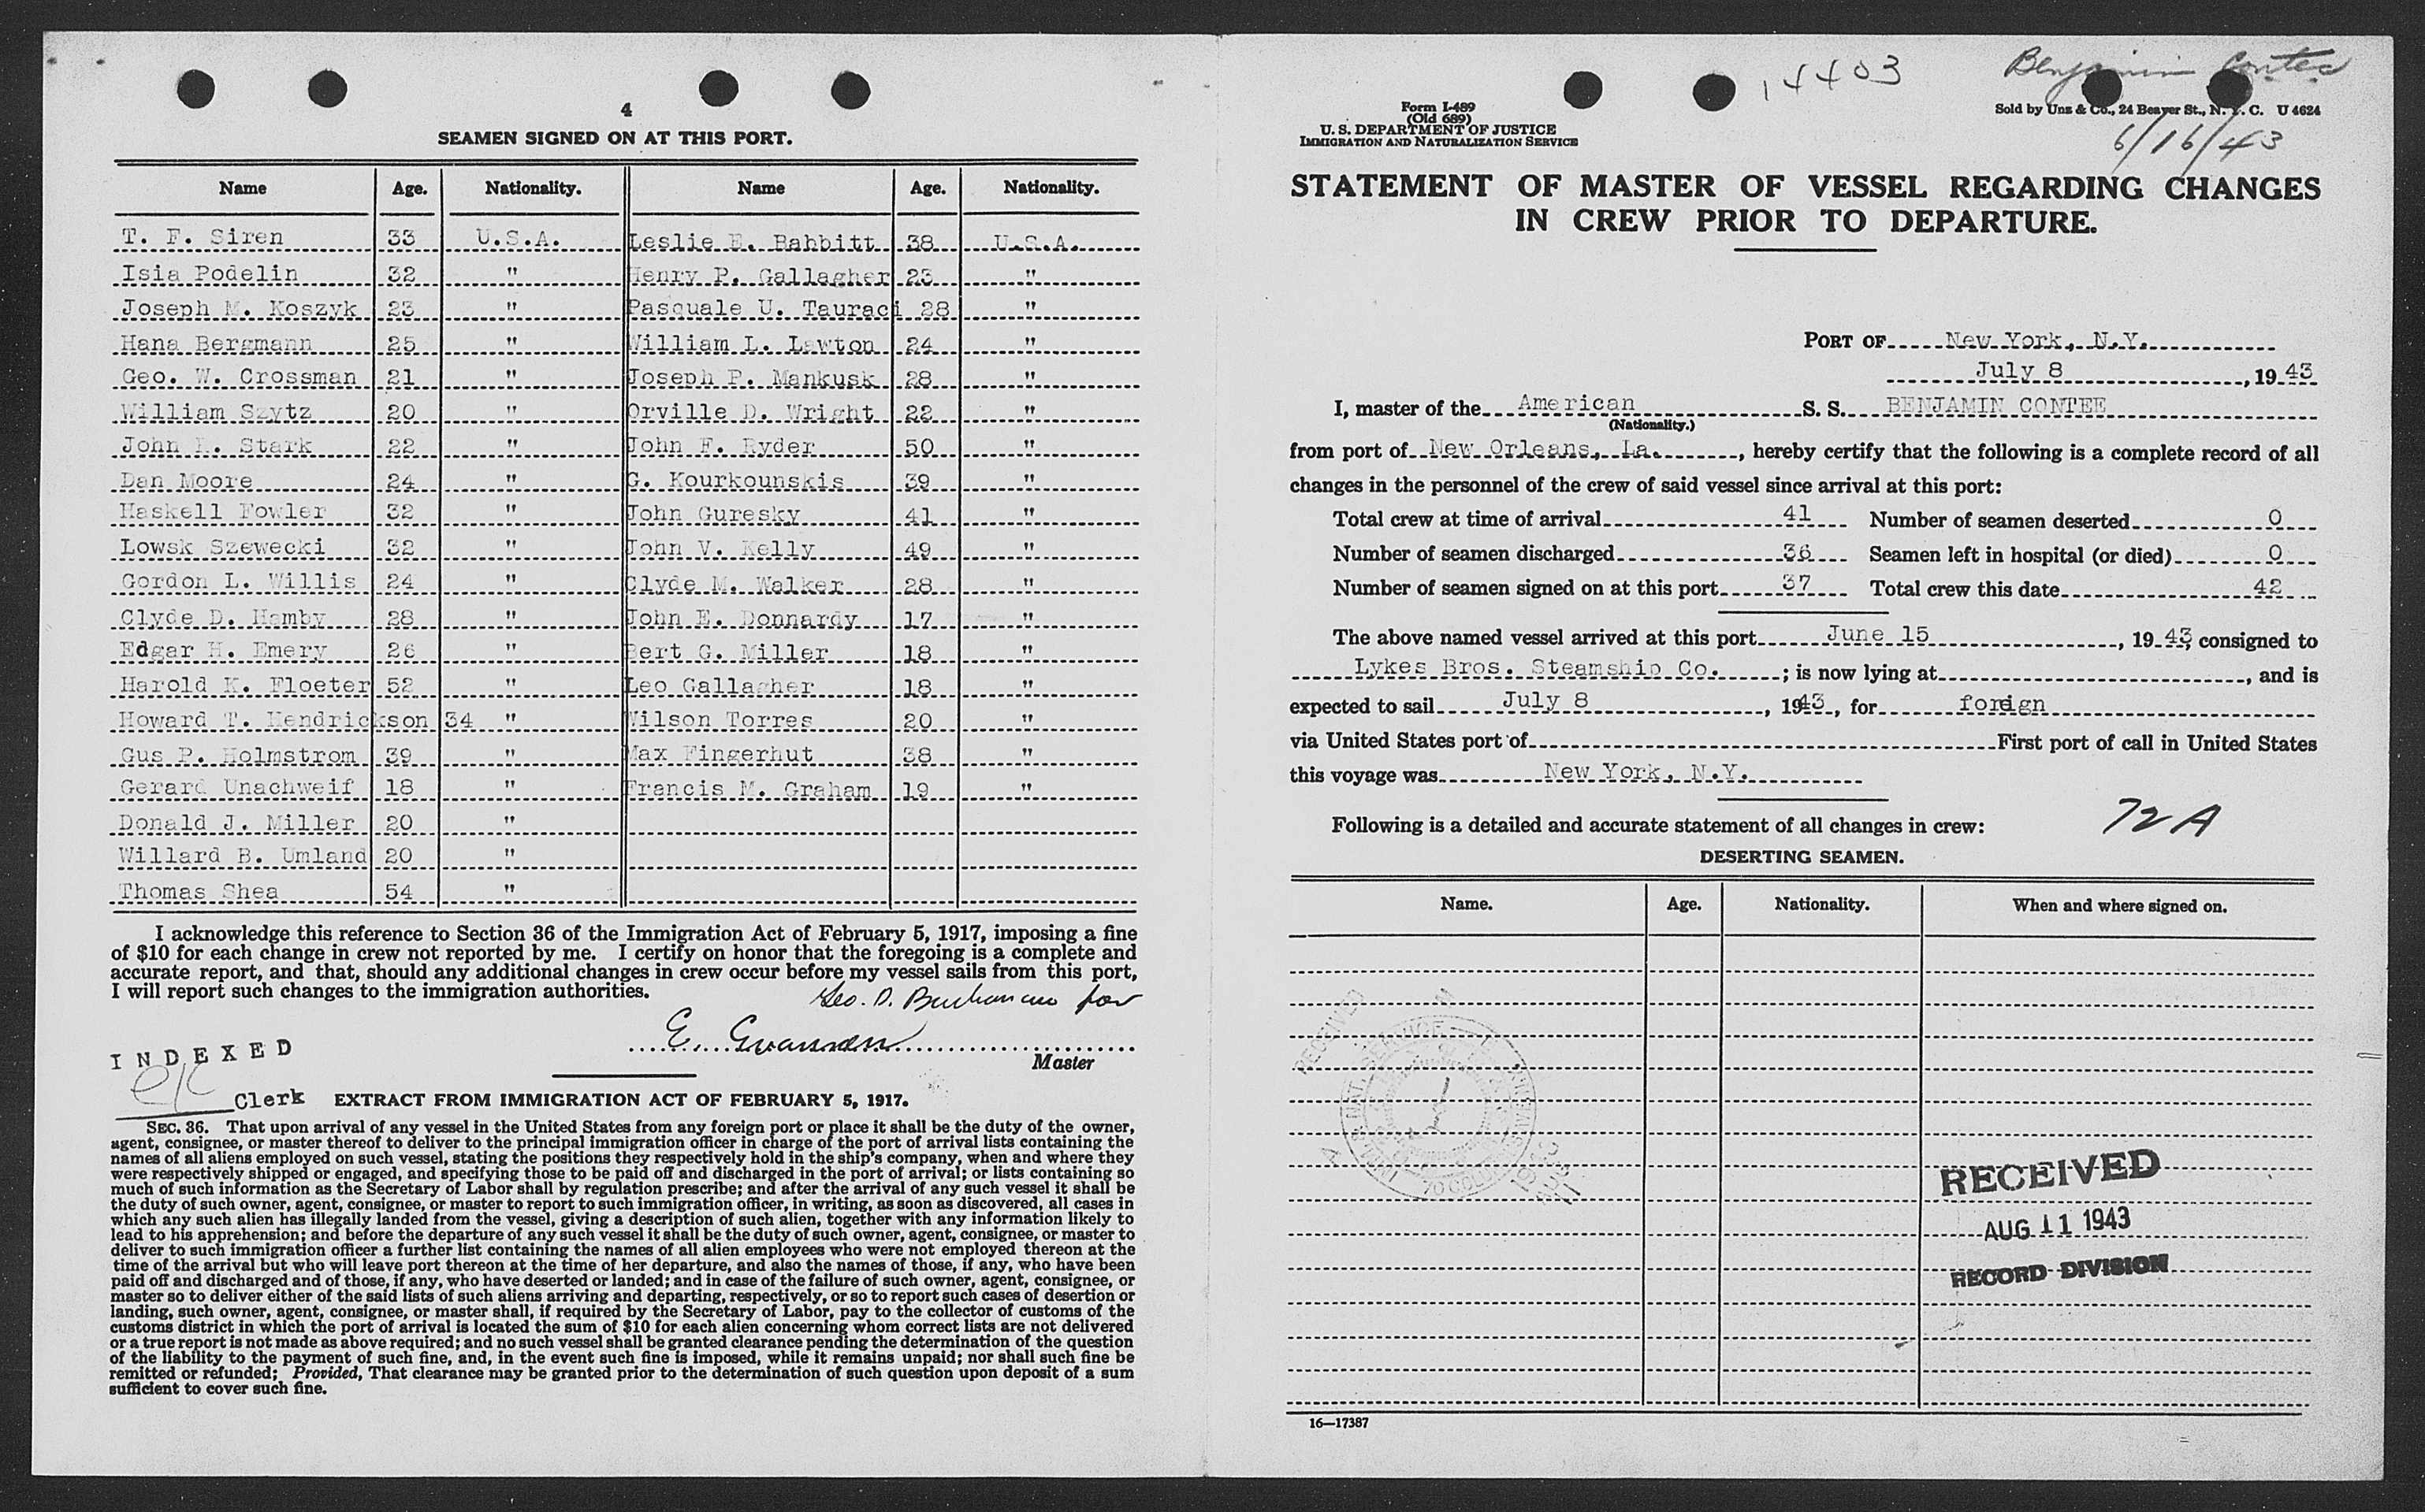 4
SEAMEN SIGNED ON AT THIS PORT.
Name Age. Nationality. Name Age. Nationality.
T. F. Siren 33 U.S.A. Leslie E. Babbitt 38 U.S.A.
Isia Podelin 32 " Henry P. Gallagher 23 "
Joseph M. Koszyk 23 " Pasquale U. Tauraci 28 "
Hana Bergmann 25 " William L. Lawton 24 "
Geo. W. Crossman 21 " Joseph P. Mankusk 28 "
William Szytz 20 " Orville D. Wright 22 "
John L. Stark 22 " John F. Ryder 50 "
Dan Moore 24 " G. Kourkounskis 39 "
Haskell Fowler 32 " John Guresky 41 "
Lowsk Szewecki 32 " John V. Kelly 49 "
Gordon L. Willis 24 " Clyde M. Walker 28 "
Clyde D. Hamby 28 " John E. Donnardy 17 "
Edgar H. Emery 26 " Bert G. Miller 18 "
Harold K. Floeter 52 " Leo Gallagher 18 "
Howard T. Hendrickson 34 " Wilson Torres 20 "
Gus P. Holmstrom 39 " Max Fingerhut 38 "
Gerard Unachweif 18 " Francis M. Graham 19 "
Donald J. Miller 20 "
Willard B. Umland 20 "
Thomas Shea 54 "
I acknowledge this reference to Section 36 of the Immigration Act of February 5, 1917, imposing a fine
of $10 for each change in crew not reported by me. I certify on honor that the foregoing is a complete and
accurate report, and that, should any additional changes in crew occur before my vessel sails from this port,
I will report such changes to the immigration authorities.
Geo. D. Buchanan for
E.
Master
INDEXED
Clerk
EXTRACT FROM IMMIGRATION ACT OF FEBRUARY 5, 1917.
SEC. 36. That upon arrival of any vessel in the United States from any foreign port or place it shall be the duty of the owner,
agent, consignee, or master thereof to deliver to the principal immigration officer in charge of the port of arrival lists containing the
names of all aliens employed on such vessel, stating the positions they respectively hold in the ship's company, when and where they
were respectively shipped or engaged, and specifying those to be paid off and discharged in the port of arrival; or lists containing so
much of such information as the Secretary of Labor shall by regulation prescribe; and after the arrival of any such vessel it shall be
the duty of such owner, agent, consignee, or master to report to such immigration officer, in writing, as soon as discovered, all cases in
which any such alien has illegally landed from the vessel, giving a description of such alien, together with any information likely to
lead to his apprehension; and before the departure of any such vessel it shall be the duty of such owner, agent, consignee, or master to
deliver to such immigration officer a further list containing the names of all alien employees who were not employed thereon at the
time of the arrival but who will leave port thereon at the time of her departure, and also the names of those, if any, who have been
paid off and discharged and of those, if any, who have deserted or landed; and in case of the failure of such owner, agent, consignee, or
master so to deliver either of the said lists of such aliens arriving and departing, respectively, or so to report such cases of desertion or
landing, such owner, agent, consignee, or master shall, if required by the Secretary of Labor, pay to the collector of customs of the
customs district in which the port of arrival is located the sum of $10 for each alien concerning whom correct lists are not delivered
or a true report is not made as above required; and no such vessel shall be granted clearance pending the determination of the question
of the liability to the payment of such fine, and, in the event such fine is imposed, while it remains unpaid; nor shall such fine be
remitted or refunded; Provided, That clearance may be granted prior to the determination of such question upon deposit of a sum
sufficient to cover such fine.
14403
Benjamin Contee
Form I-489
(Old 689)
U. S. DEPARTMENT OF JUSTICE
IMMIGRATION AND NATURALIZATION SERVICE
Sold by Unz & Co., 24 Beaver St., N. Y. C. U 4624
6/16/43
STATEMENT OF MASTER OF VESSEL REGARDING CHANGES
IN CREW PRIOR TO DEPARTURE.
PORT OF New York, N.Y.
July 8, 1943
I, master of the American S. S. BENJAMIN CONTEE
(Nationality.)
from port of New Orleans, La., hereby certify that the following is a complete record of all
changes in the personnel of the crew of said vessel since arrival at this port:
Total crew at time of arrival 41 Number of seamen deserted 0
Number of seamen discharged 36 Seamen left in hospital (or died) 0
Number of seamen signed on at this port 37 Total crew this date 42
The above named vessel arrived at this port June 15, 1943 consigned to
Lykes Bros. Steamship Co.; is now lying at, and is
expected to sail July 8, 1943, for foreign
via United States port of First port of call in United States
this voyage was New York, N.Y.
Following is a detailed and accurate statement of all changes in crew:
72A
DESERTING SEAMEN.
Name. Age. Nationality. When and where signed on.
RECEIVED
RECEIVED
AUG 11 1943
RECORD DIVISION
16—17387